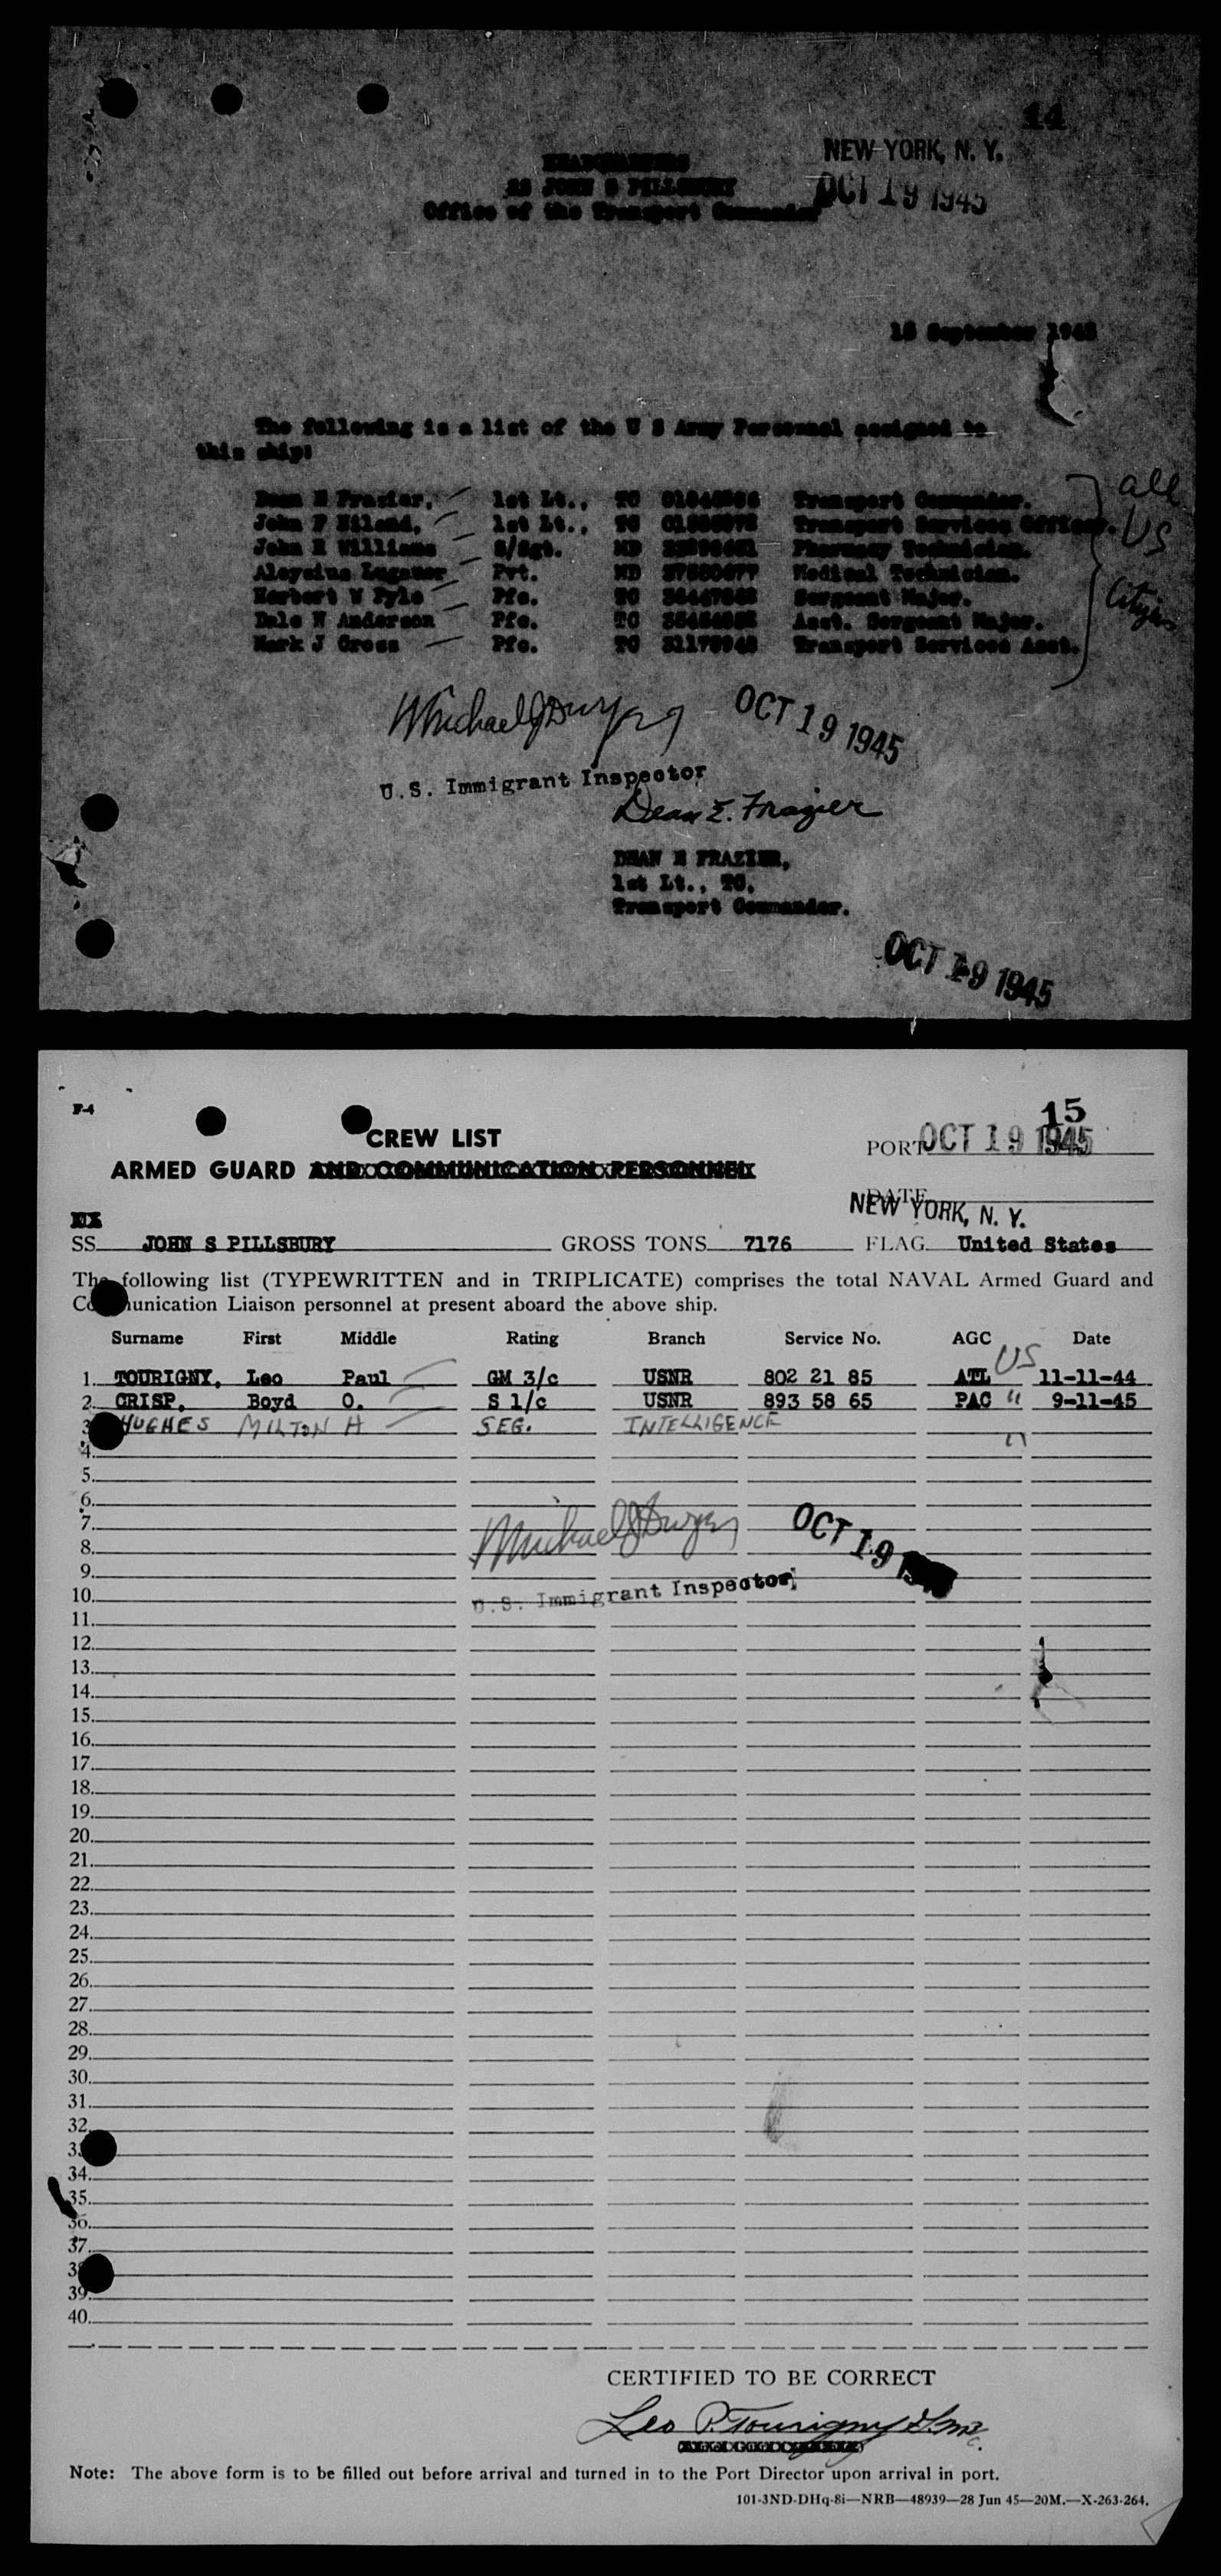 14
NEW YORK, N. Y.
HEADQUARTERS
SS JOHN S PILLSBURY
OCT 19 1945
Office of the Transport Commander
18 September
The following is a list of the U S Army Personnel assigned to
this ship:
Dean E Frazier, 1st Lt., TC Transport Commander.
John F 1st Lt., TC Transport Services Officer.
John R Williams S/Sgt. MD Pharmacy Technician.
Aloysius Pvt. MD Medical Technician.
Herbert V Pyle Pfc. TC Sergeant Major.
Dale W Anderson Pfc. TC Asst. Sergeant Major.
Mark J Gross Pfc. TC Transport Services Asst.
all
US
Citizens
Michael J Dwyer OCT 19 1945
U.S. Immigrant Inspector
Dean E. Frazier
DEAN E FRAZIER,
1st Lt., TC,
Transport Commander.
OCT 19 1945
F-4
15
CREW LIST
PORT OCT 19 1945
ARMED GUARD AND COMMUNICATION PERSONNEL
DATE
NEW YORK, N. Y.
SS JOHN S PILLSBURY GROSS TONS 7176 FLAG United States
The following list (TYPEWRITTEN and in TRIPLICATE) comprises the total NAVAL Armed Guard and
Communication Liaison personnel at present aboard the above ship.
Surname First Middle Rating Branch Service No. AGC Date
US
1. TOURIGNY, Leo Paul GM 3/c USNR 802 21 85 ATL 11-11-44
2. CRISP, Boyd O. S 1/c USNR 893 58 65 PAC " 9-11-45
3 HUGHES MILTON H SEG. INTELLIGENCE "
4.
5.
6.
7.
8.
9.
10.
Michael J Dwyer OCT 19
U.S. Immigrant Inspector
11.
12.
13.
14.
15.
16.
17.
18.
19.
20.
21.
22.
23.
24.
25.
26.
27.
28.
29.
30.
31.
32.
33
34.
35.
36.
37.
38
39.
40.
CERTIFIED TO BE CORRECT
Leo P. Tourigny
Note: The above form is to be filled out before arrival and turned in to the Port Director upon arrival in port.
101-3ND-DHq-8i—NRB—48939—28 Jun 45—20M.—X-263-264.